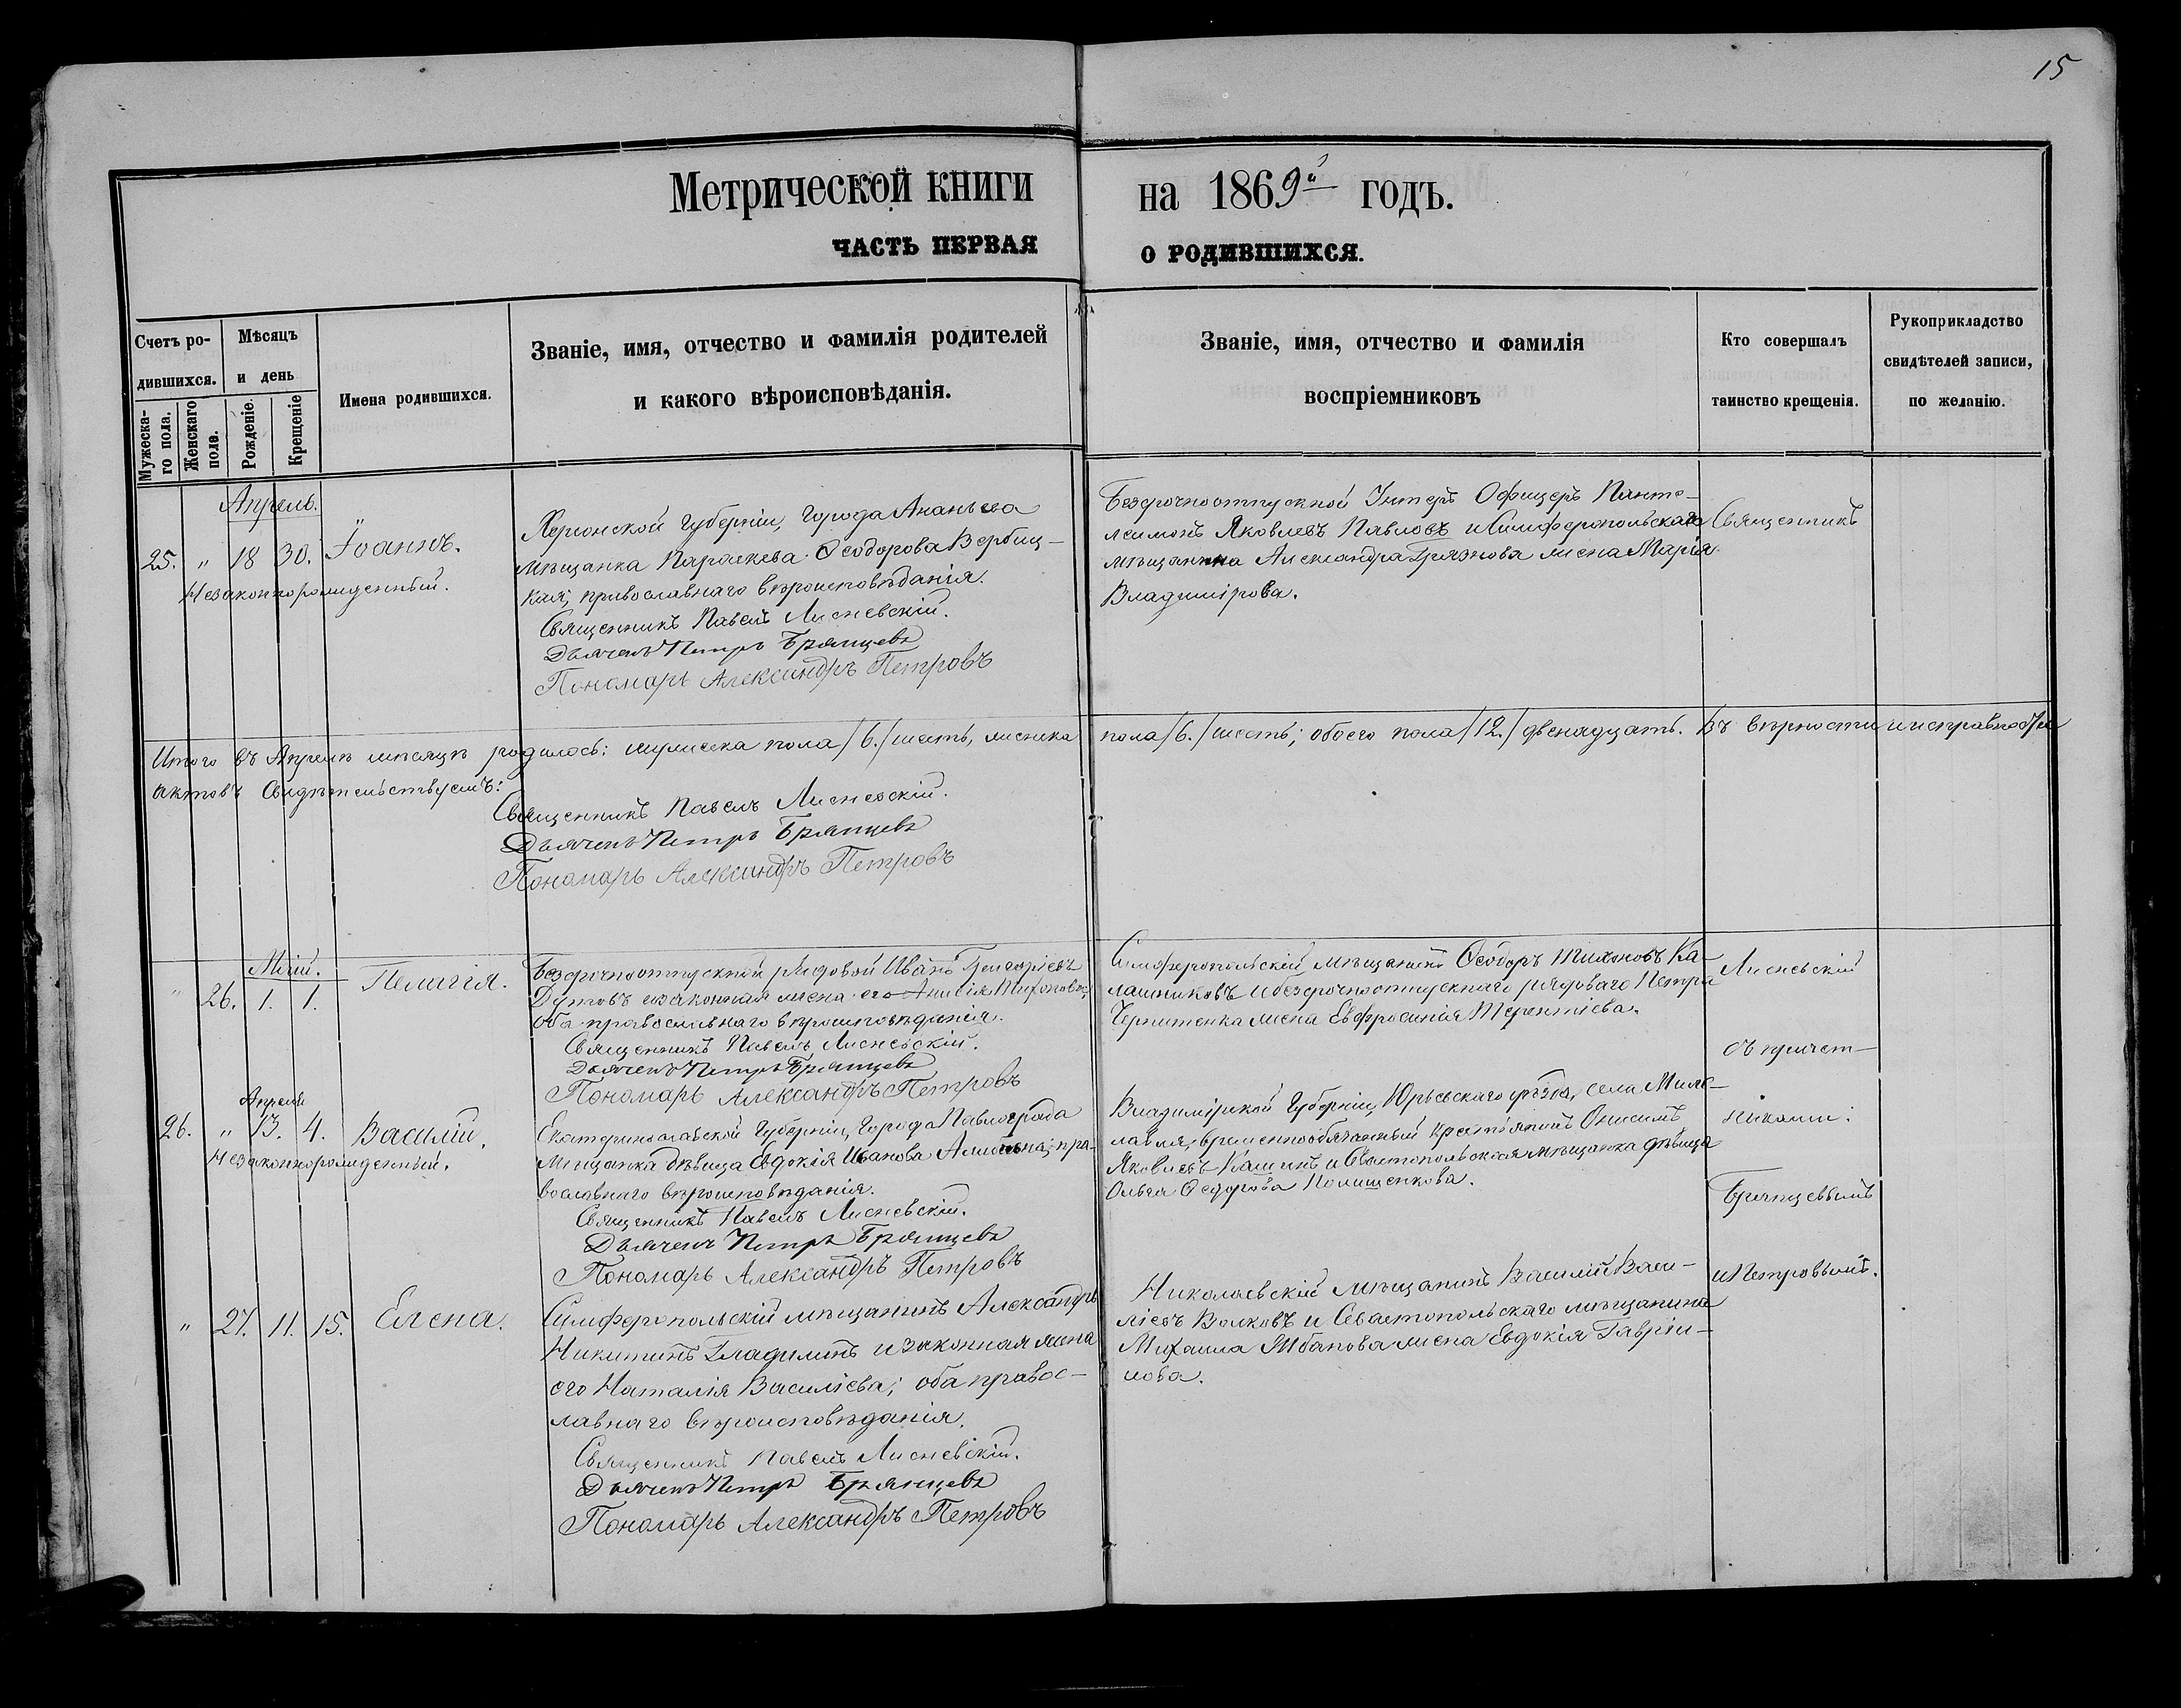 15
Метрической книги на 1869й годъ.
ЧАСТЬ ПЕРВАЯ О РОДИВШИХСЯ.
Счетъ ро-
дившихся.
Мужеска-
го пола.
Женскаго
пола.
Мѣсяцъ
и день
Рожденіе.
Крещеніе
Имена родившихся.
Званіе, имя, отчество и фамилія родителей
и какого вѣроисповѣданія.
Званіе, имя, отчество и фамилія
воспріемниковъ
Кто совершалъ
таинство крещенія.
Рукоприкладство
свидѣтелей записи,
по желанію.
Апрель.
25. " 18 30. Іоаннъ.
Незаконнорожденный.
Херсонской Губерніи, Города Ананьева
мѣщанка Параскева Ѳеодорова Вербиц-
кая; православнаго вѣроисповѣданія.
Священникъ Павелъ Лисневскій.
Дьячекъ Петръ Брянцевъ
Пономарь Александръ Петровъ
Безсрочноотпускной Унтеръ Офицеръ Панте-
леимонъ Яковлевъ Павловъ и Симферопольскаго
мѣщанина Александра Грязнова жена Марія
Владимірова.
Священникъ
Итого въ Апрелѣ мѣсяцѣ родилось: мужеска пола /6./ шесть, женска пола /6./ шесть; обоего пола /12./ двенадцать. Въ вѣрности и исправности
актовъ Свидѣтельствуемъ:
Священникъ Павелъ Лисневскій.
Дьячекъ Петръ Брянцевъ
Пономарь Александръ Петровъ
Май.
" 26. 1. 1. Пелагія.
Безсрочноотпускной рядовой Иванъ Григоріевъ
Дутовъ и законная жена его Анисія Тихоновна;
оба православнаго вѣроисповѣданія.
Священникъ Павелъ Лисневскій.
Дьячекъ Петръ Брянцевъ
Пономарь Александръ Петровъ
Симферопольскій мѣщанинъ Ѳеодоръ Тихоновъ Ка-
лашниковъ и безсрочноотпускнаго рядоваго Петра
жена Евфросинія Терентіева.
Лисневскій
съ причет-
никами:
Брянцевымъ
и Петровымъ.
Апреля
26. " 13. 4. Василій.
Незаконнорожденный.
Екатеринославской Губерніи, Города Павлограда
Мѣщанка дѣвица Евдокія Иванова пра-
вославнаго вѣроисповѣданія.
Священникъ Павелъ Лисневскій.
Дьячекъ Петръ Брянцевъ
Пономарь Александръ Петровъ
Владимірской Губерніи, Юрьевскаго уѣзда, села
временнообязанный крестьянинъ Онисимъ
Яковлевъ Кашинъ и Севастопольская мѣщанка дѣвица
Ольга Ѳеодорова Полищенкова.
" 27. 11. 15. Елена.
Симферопольскій мѣщанинъ Александръ
Никитинъ Гладилинъ и законная жена
его Наталія Василіева; оба правос-
лавнаго вѣроисповѣданія.
Священникъ Павелъ Лисневскій.
Дьячекъ Петръ Брянцевъ
Пономарь Александръ Петровъ
Николаевскій мѣщанинъ Василій Васи-
ліевъ Волковъ и Севастопольскаго мѣщанина
Михаила жена Евдокія Гавріи-
лова.